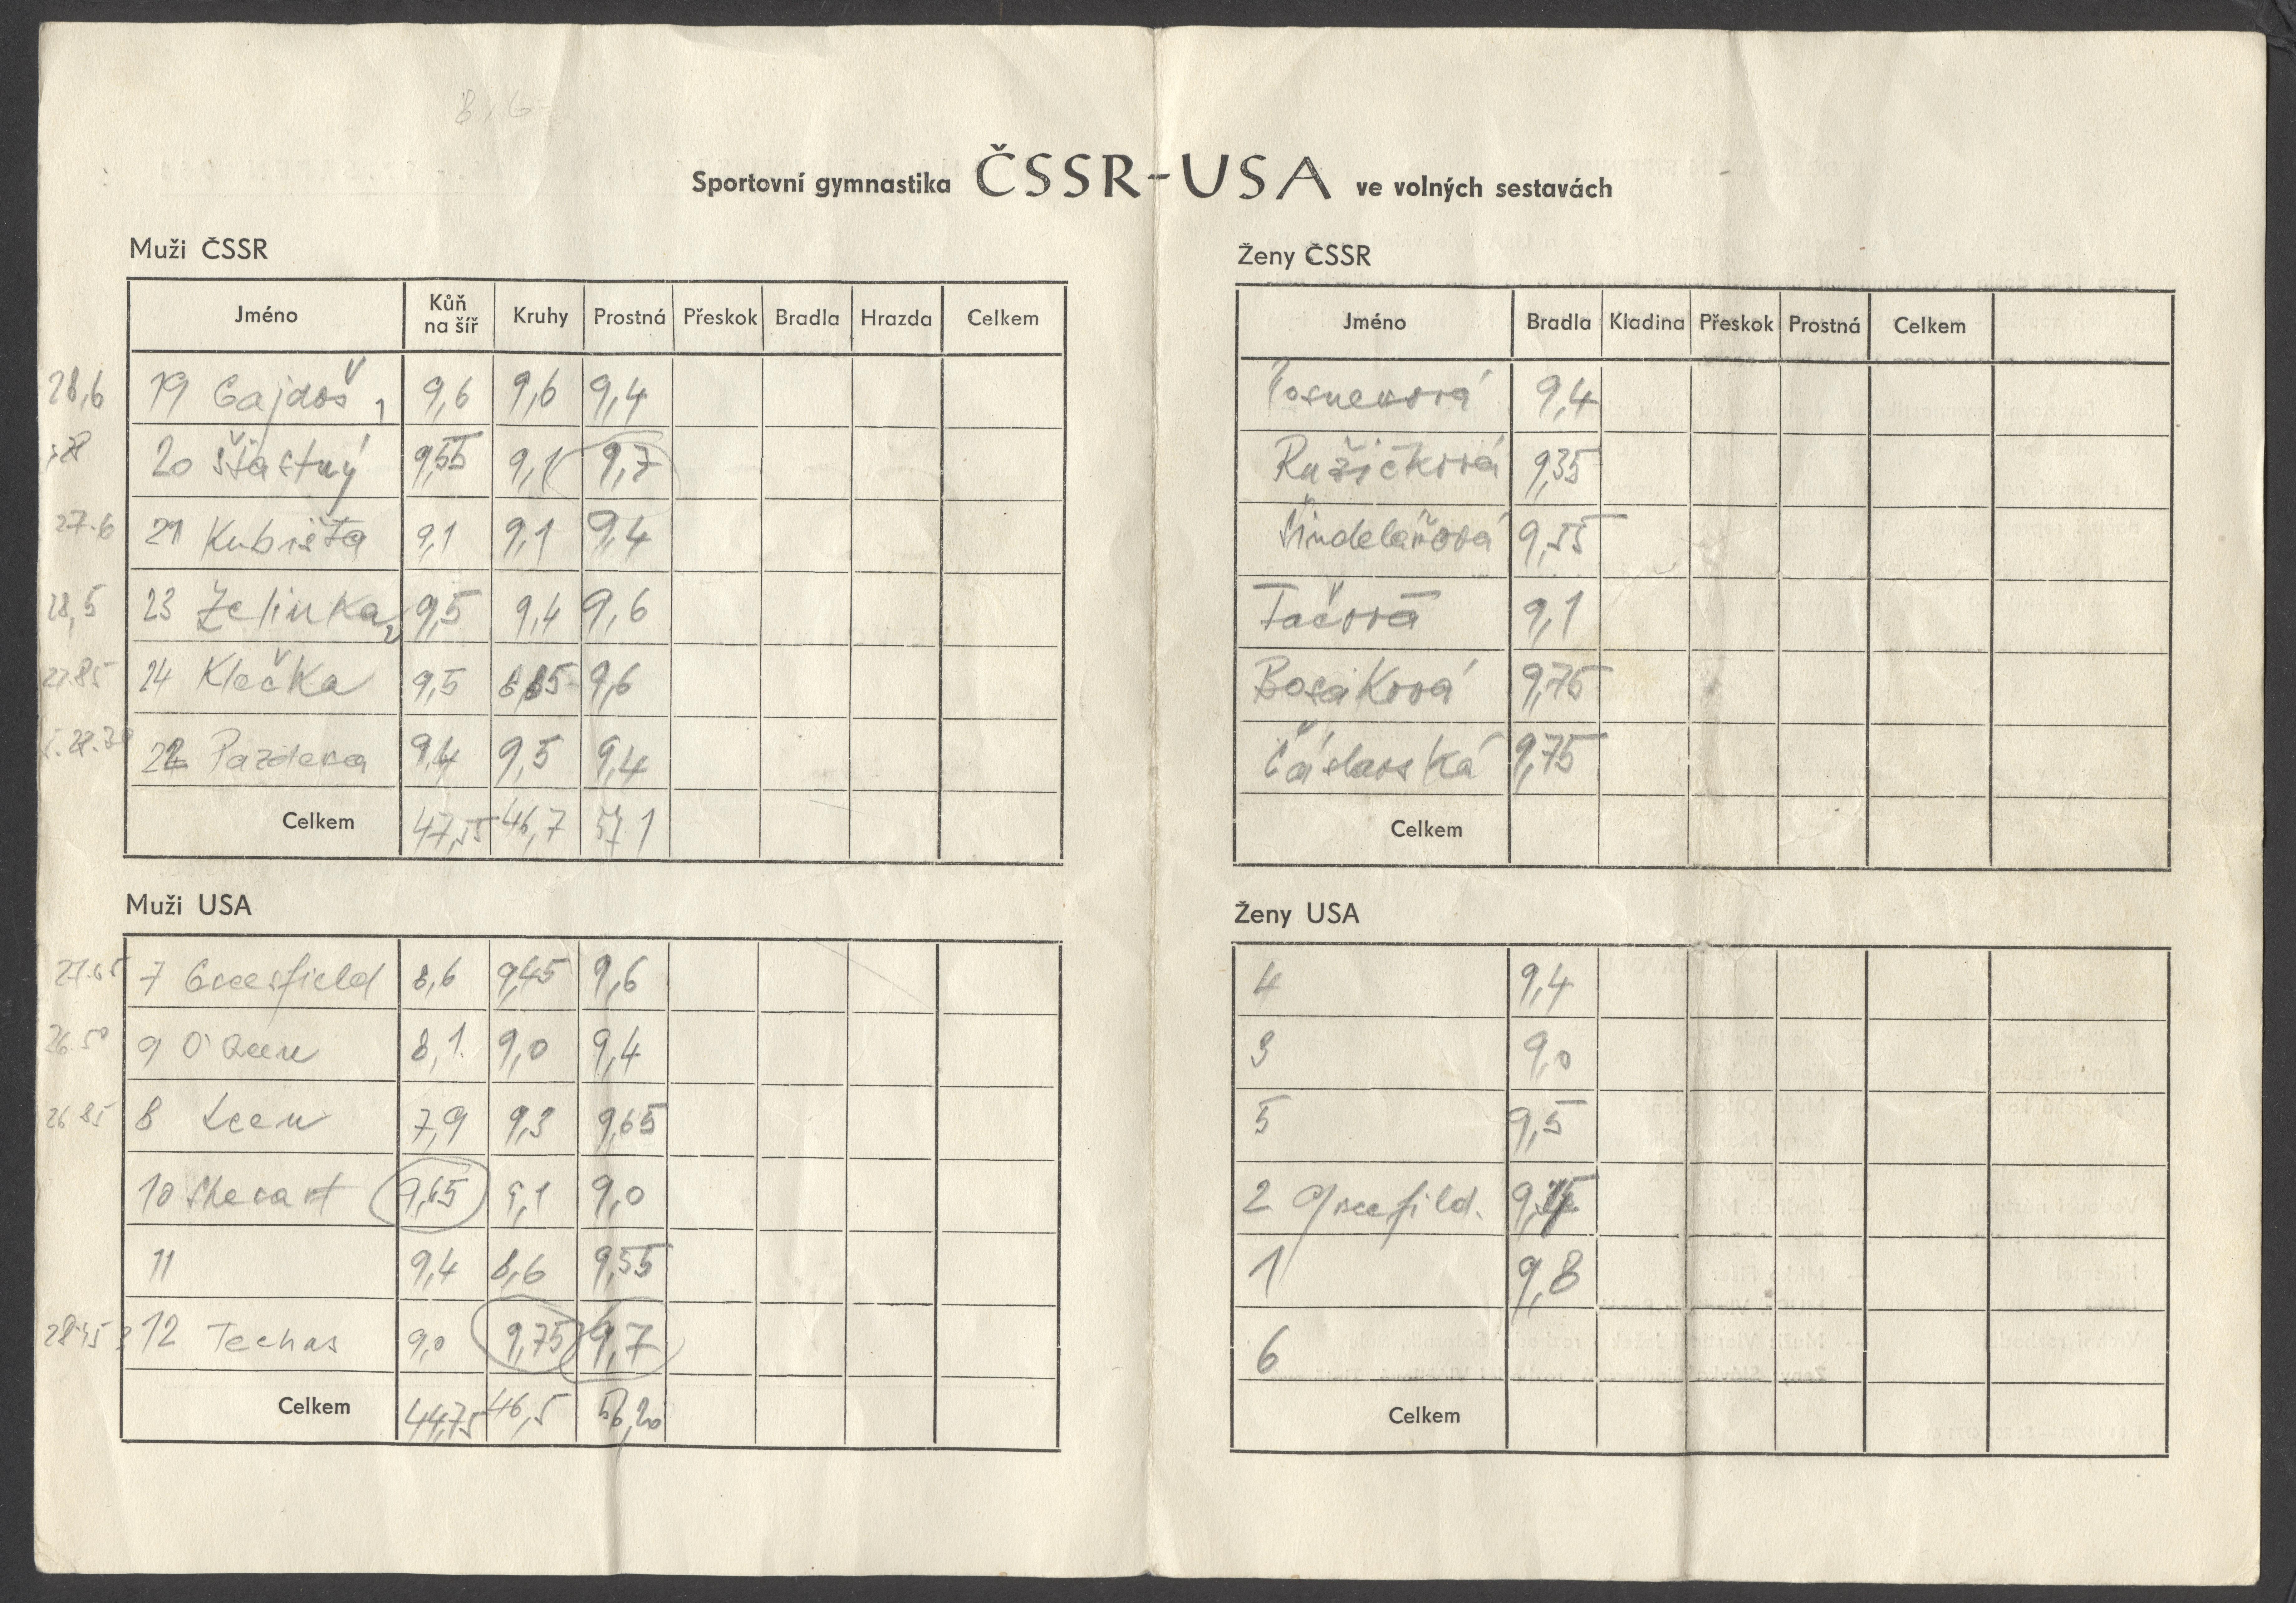 8,6
Sportovní gymnastika ČSSR-USA ve volných sestavách
Muži ČSSR
Jméno Kůň na šíř Kruhy Prostná Přeskok Bradla Hrazda Celkem
28,6 19 Gajdoš 1 9,6 9,6 9,4
20 Šťastný 9,55 9,1 9,7
27.6 21 Kubišta 9,1 9,1 9,4
28,5 23 Zelinka 2 9,5 9,4 9,6
27.85 24 Klečka 9,5 8,85 9,6
22 Pazdera 9,4 9,5 9,4
Celkem 47,55 46,7 57 1
Muži USA
27.65 7 Greefield 8,6 9,45 9,6
26.50 9 8,1. 9,0 9,4
26 85 8 7,9 9,3 9,65
10 9,65 9,1 9,0
11 9,4 8,6 9,55
28.45 12 Techas 9,0 9,75 9,7
Celkem 44,75 46,5 ,20
Ženy ČSSR
Jméno Bradla Kladina Přeskok Prostná Celkem
Posnerová 9,4
Ružičková 9,35
Šindelařová 9,55
Tačová 9,1
Bosáková 9,75
Čáslavská 9,75
Celkem
Ženy USA
4 9,4
3 9,0
5 9,5
2
1 9,8
6
Celkem